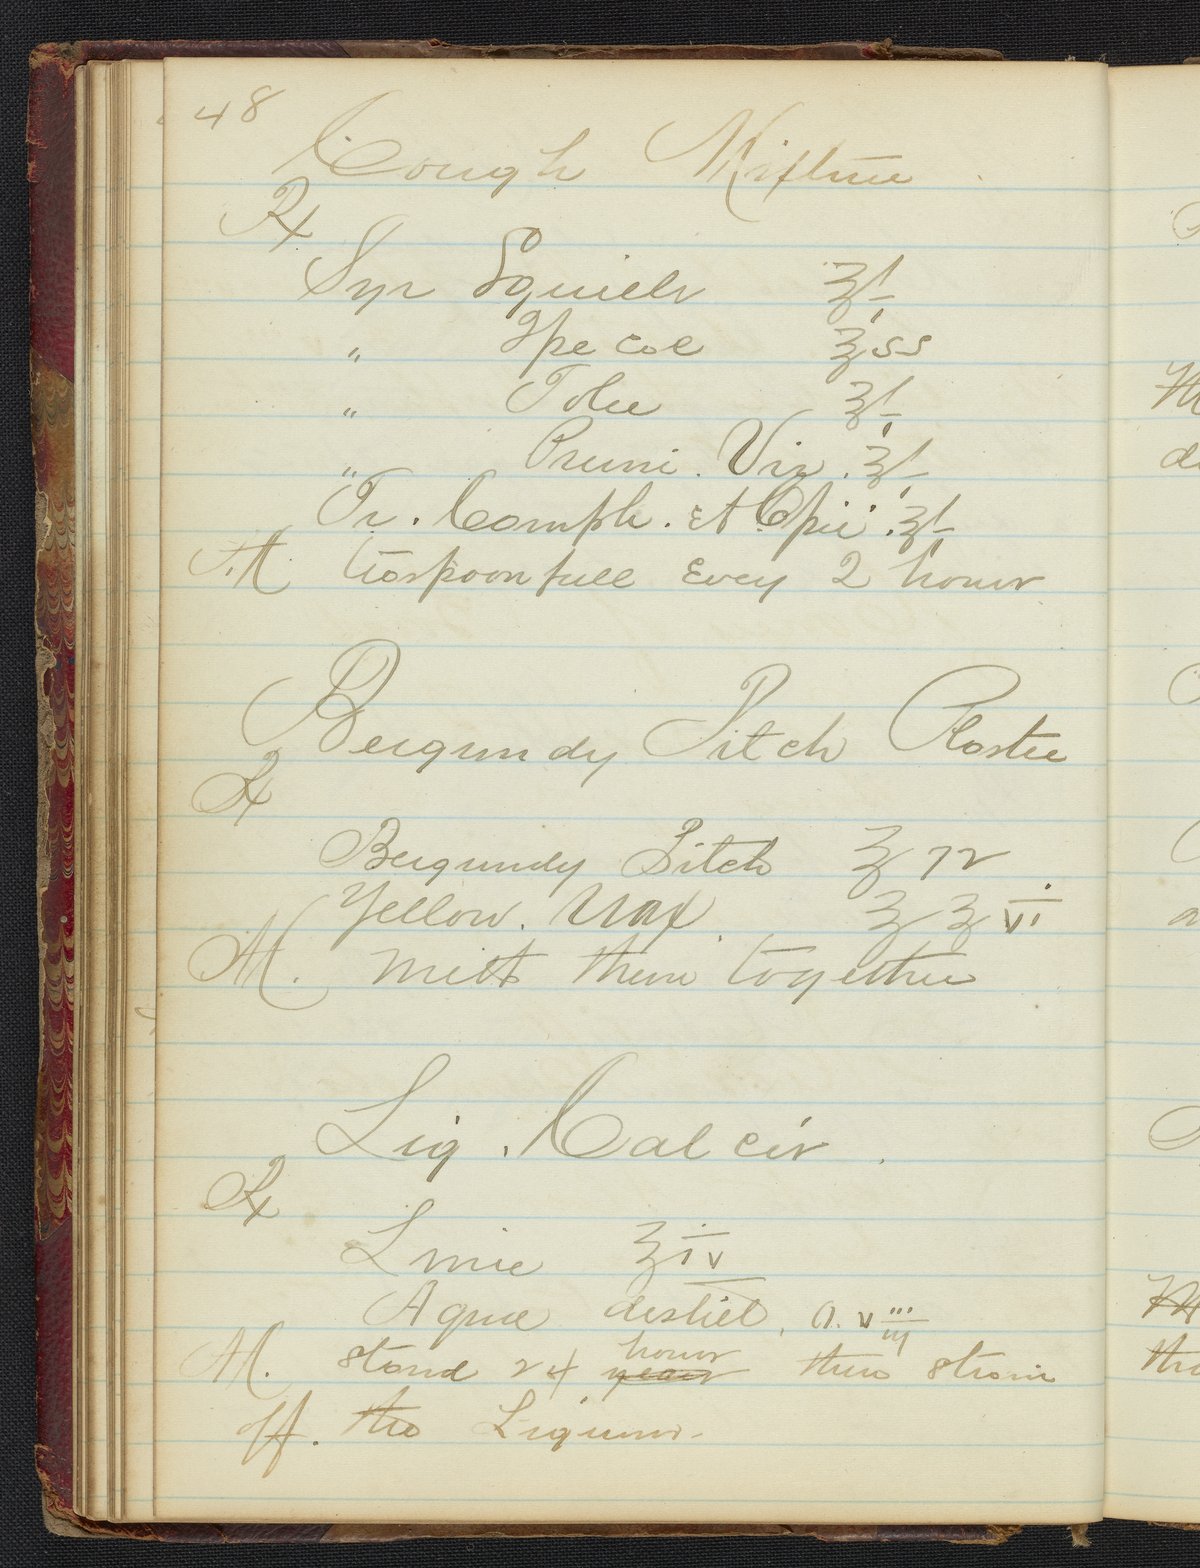 48
Cough Mixture
℞
Syr Squills ℥i
" Ipecac ℥ss
" Tolu ℥i
" Pruni. Vir. ℥i
Tr. Camph. et Opii. ℥i
M. teaspoonfull Every 2 hours
Burgundy Pitch Plaster
℞
Burgundy Pitch ℥ 72
Yellow. Wax. ℥ ℥ vi
M. melt them together
Liq. Calcis.
℞
Lime ℥iv
Aquae destill. O. viii
hours
M. stand 24 years then strain
off. the Liquor.